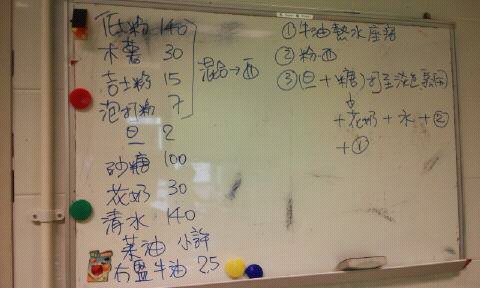 低粉 140
木薯 30
吉士粉 15
泡打粉 7
混合→西
旦 2
砂糖 100
花奶 30
清水 140
菜油 小許
有鹽牛油 25
①牛油熱水座溶
②粉西
③(旦+糖)打至淡色
↓
+花奶+水+②
+①